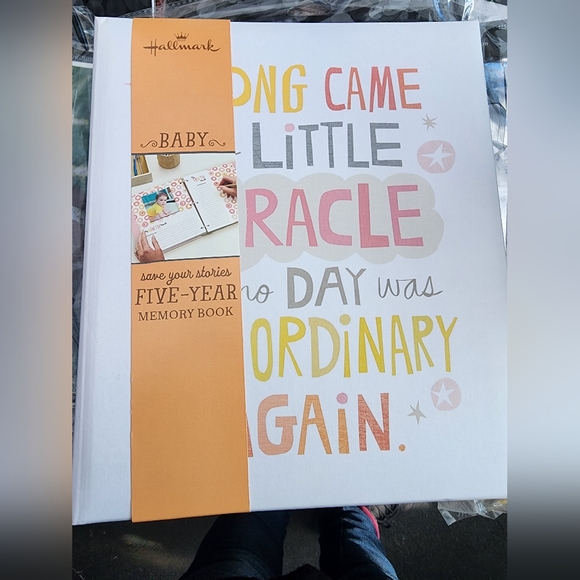 Hallmark
BABY
save your stories
FIVE-YEAR
MEMORY BOOK
ONG CAME
LiTTLE
RACLE
no DAY was
ORDiNARY
GAiN.